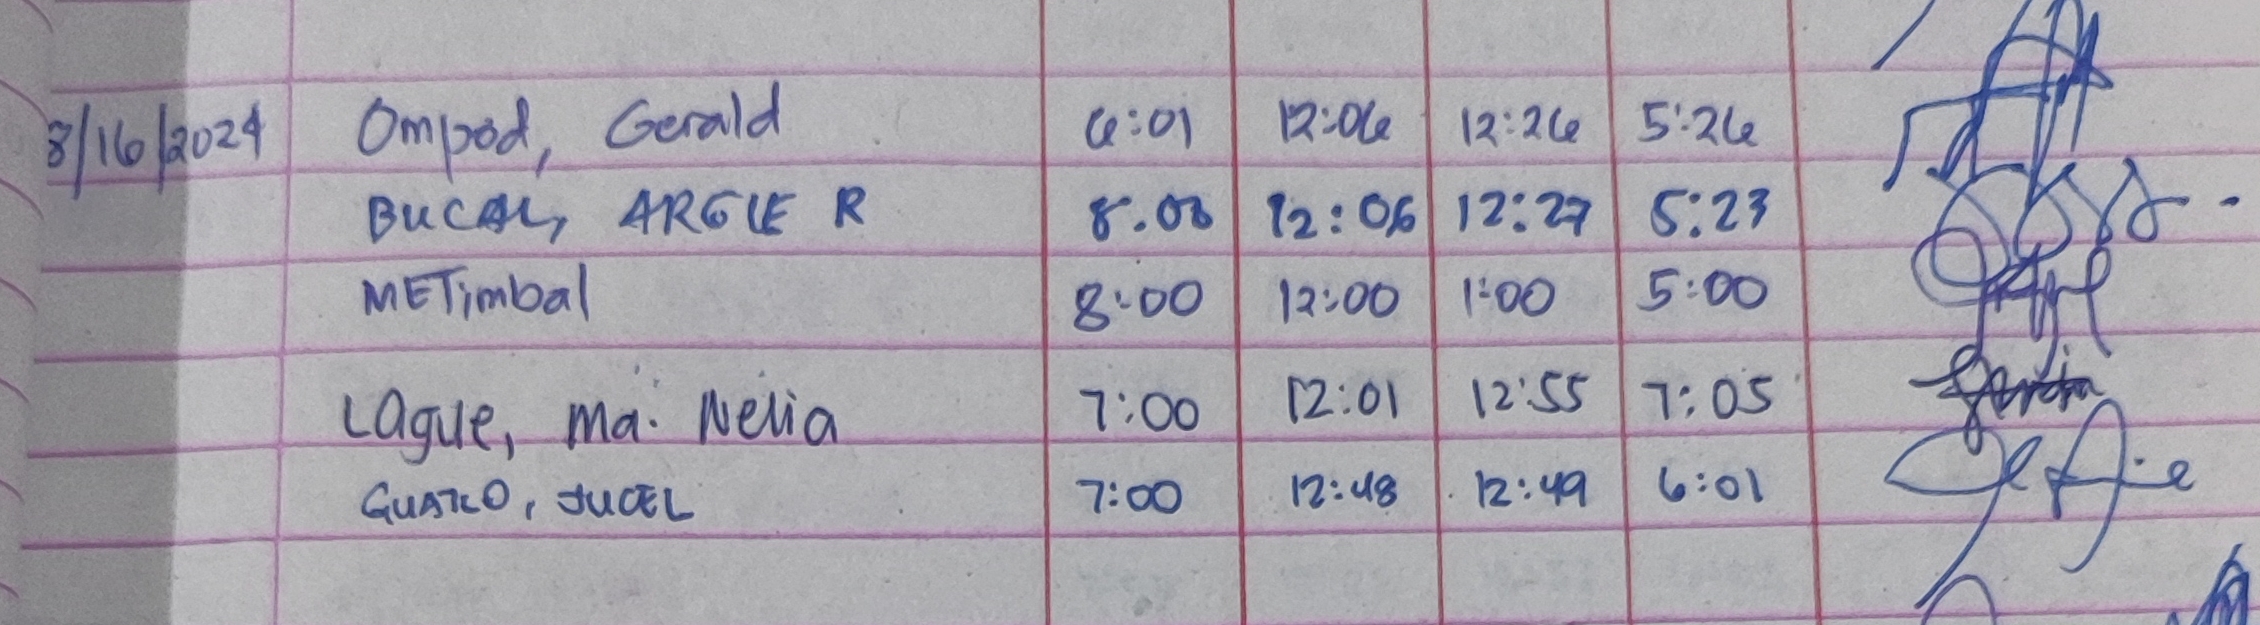 8/16/2024 Ompod, Gerald 6:01 12:06 12:26 5:26
BUCAL, ARGIE R 8:08 12:06 12:27 5:23
METimbal 8:00 12:00 1:00 5:00
LAgue, Ma. Nelia 7:00 12:01 12:55 7:05
GUATLO, JUCEL 7:00 12:48 12:49 6:01